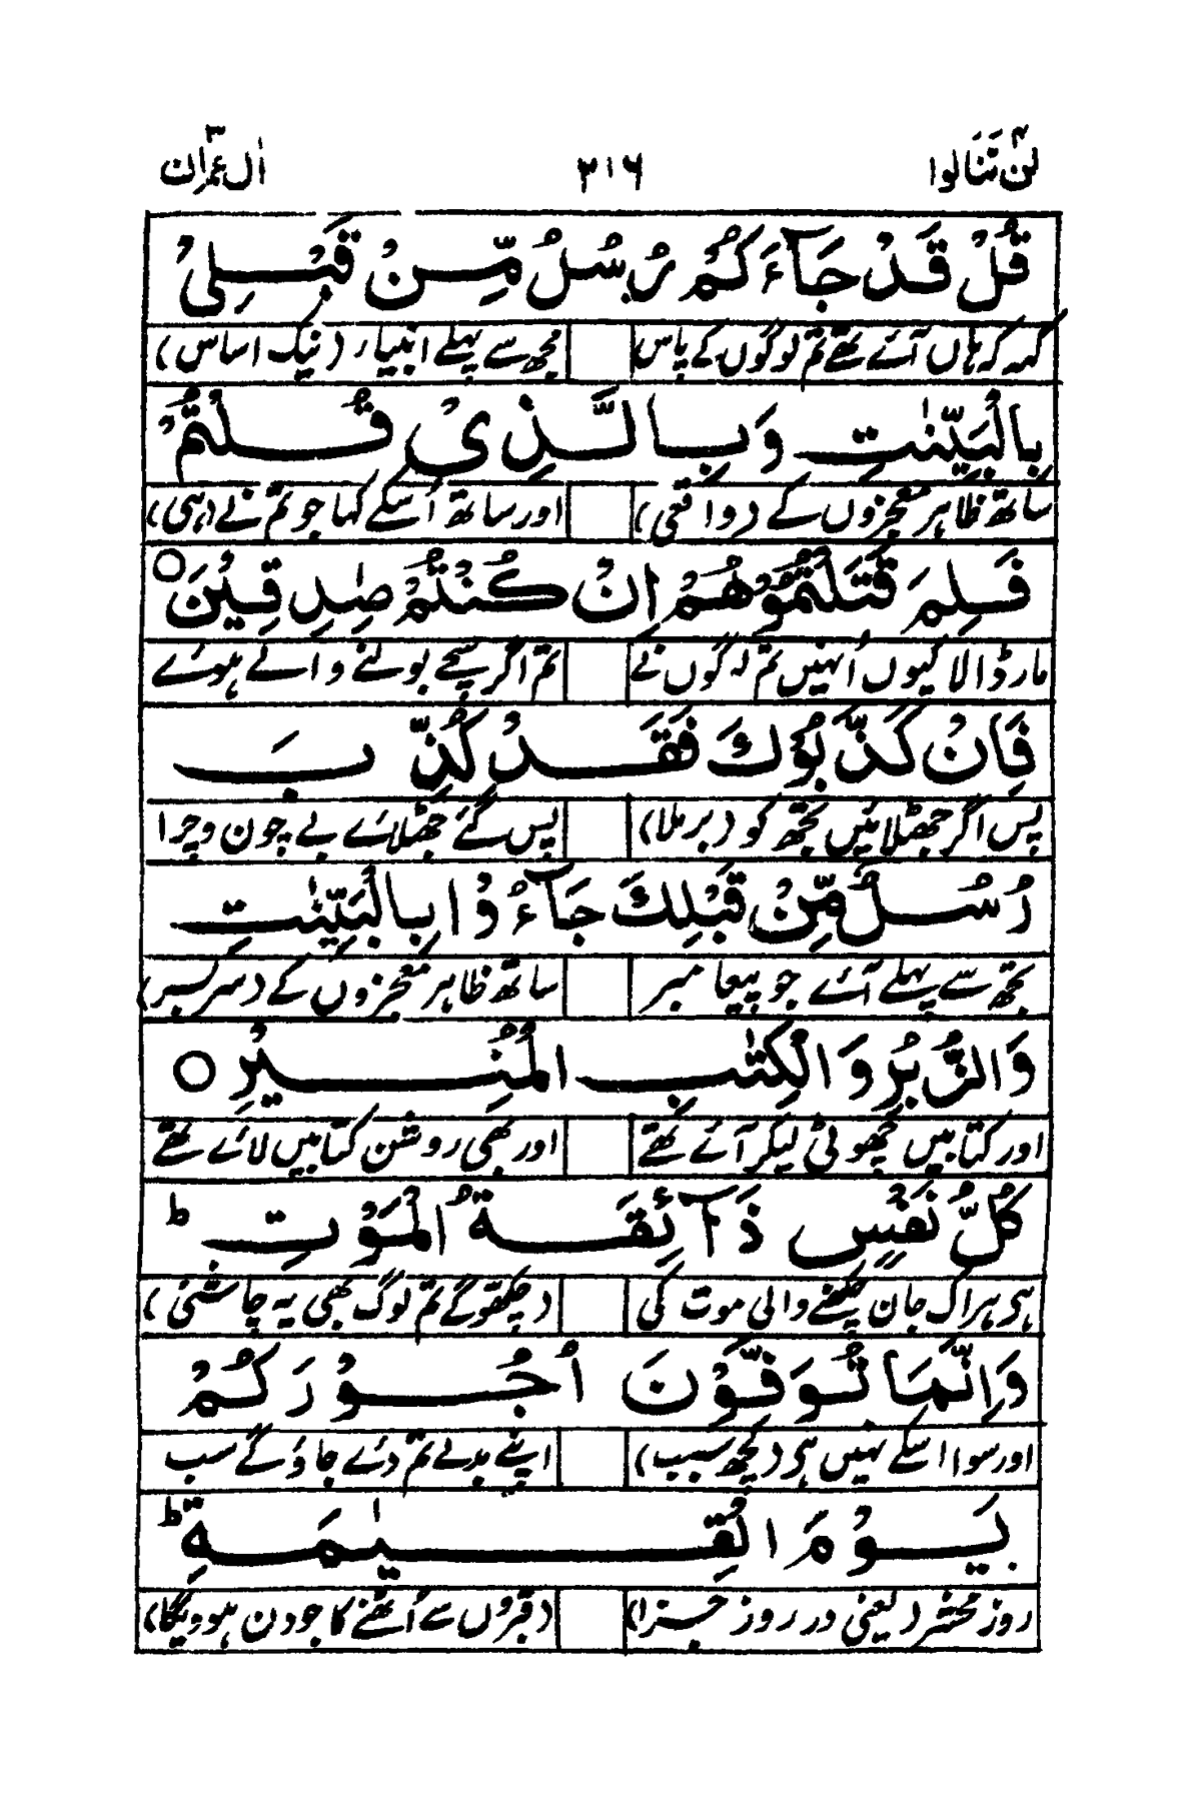 لن تنالوا ۴ ۳۱۶ اٰل عمرٰن ۳
قُلْ قَدْ جَآءَكُمْ رُسُلٌ مِّنْ قَبْلِىْ
کہہ کہ ہاں آئے تھے تم لوگوں کے پاس مجھ سے پہلے انبیاء (نیک اساس)
بِالْبَيِّنٰتِ وَبِالَّذِىْ قُلْتُمْ
ساتھ ظاہر معجزوں کے (واقعی) اور ساتھ اُسکے کہا جو تم نے (ہی)
فَلِمَ قَتَلْتُمُوْهُمْ اِنْ كُنْتُمْ صٰدِقِيْنَ ○
مار ڈالا کیوں اُنہیں تم لوگوں نے تم اگر سچے بولنے والے ہوئے
فَاِنْ كَذَّبُوْكَ فَقَدْ كُذِّبَ
پس اگر جھٹلائیں تجھ کو (برملا) پس گئے جھٹلائے بے چون وچرا
رُسُلٌ مِّنْ قَبْلِكَ جَآءُوْا بِالْبَيِّنٰتِ
تجھ سے پہلے آئے جو پیغامبر ساتھ ظاہر معجزوں کے (سربسر)
وَالزُّبُرِ وَالْكِتٰبِ الْمُنِيْرِ ○
اور کتابیں چھوٹی لیکر آئے تھے اور بھی روشن کتابیں لائے تھے
كُلُّ نَفْسٍ ذَآئِقَةُ الْمَوْتِ ؕ
ہی ہر اک جان چکھنے والی موت کی (چکھوگے تم لوگ بھی یہ چاشنی)
وَاِنَّمَا تُوَفَّوْنَ اُجُوْرَكُمْ
اور سوا اسکے نہیں ہی (کچھ سبب) اپنے بدلے تم دئے جاؤگے سب
يَوْمَ الْقِيٰمَةِ ؕ
روز محشر (یعنی در روز جزا) (قبروں سے اُٹھنے کا جو دن ہوویگا)